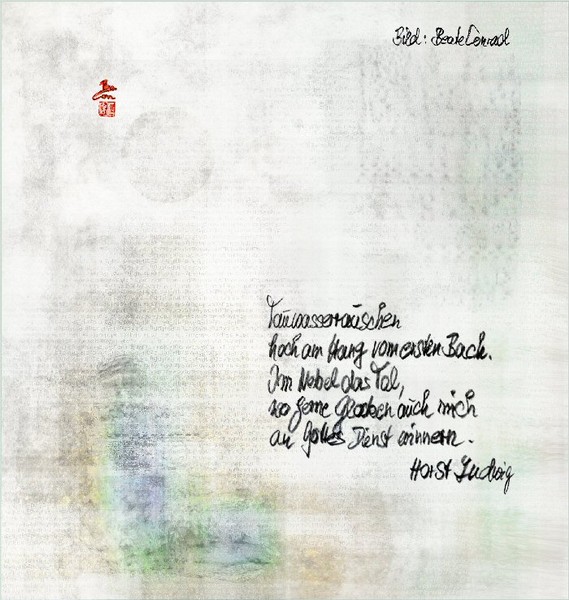 Bild: Beate Conrad
Tauwasserrauschen
hoch am Hang vom ersten Bach.
Im Nebel das Tal,
wo ferne Glocken auch mich
an Gottes Dienst erinnern.
Horst Ludwig